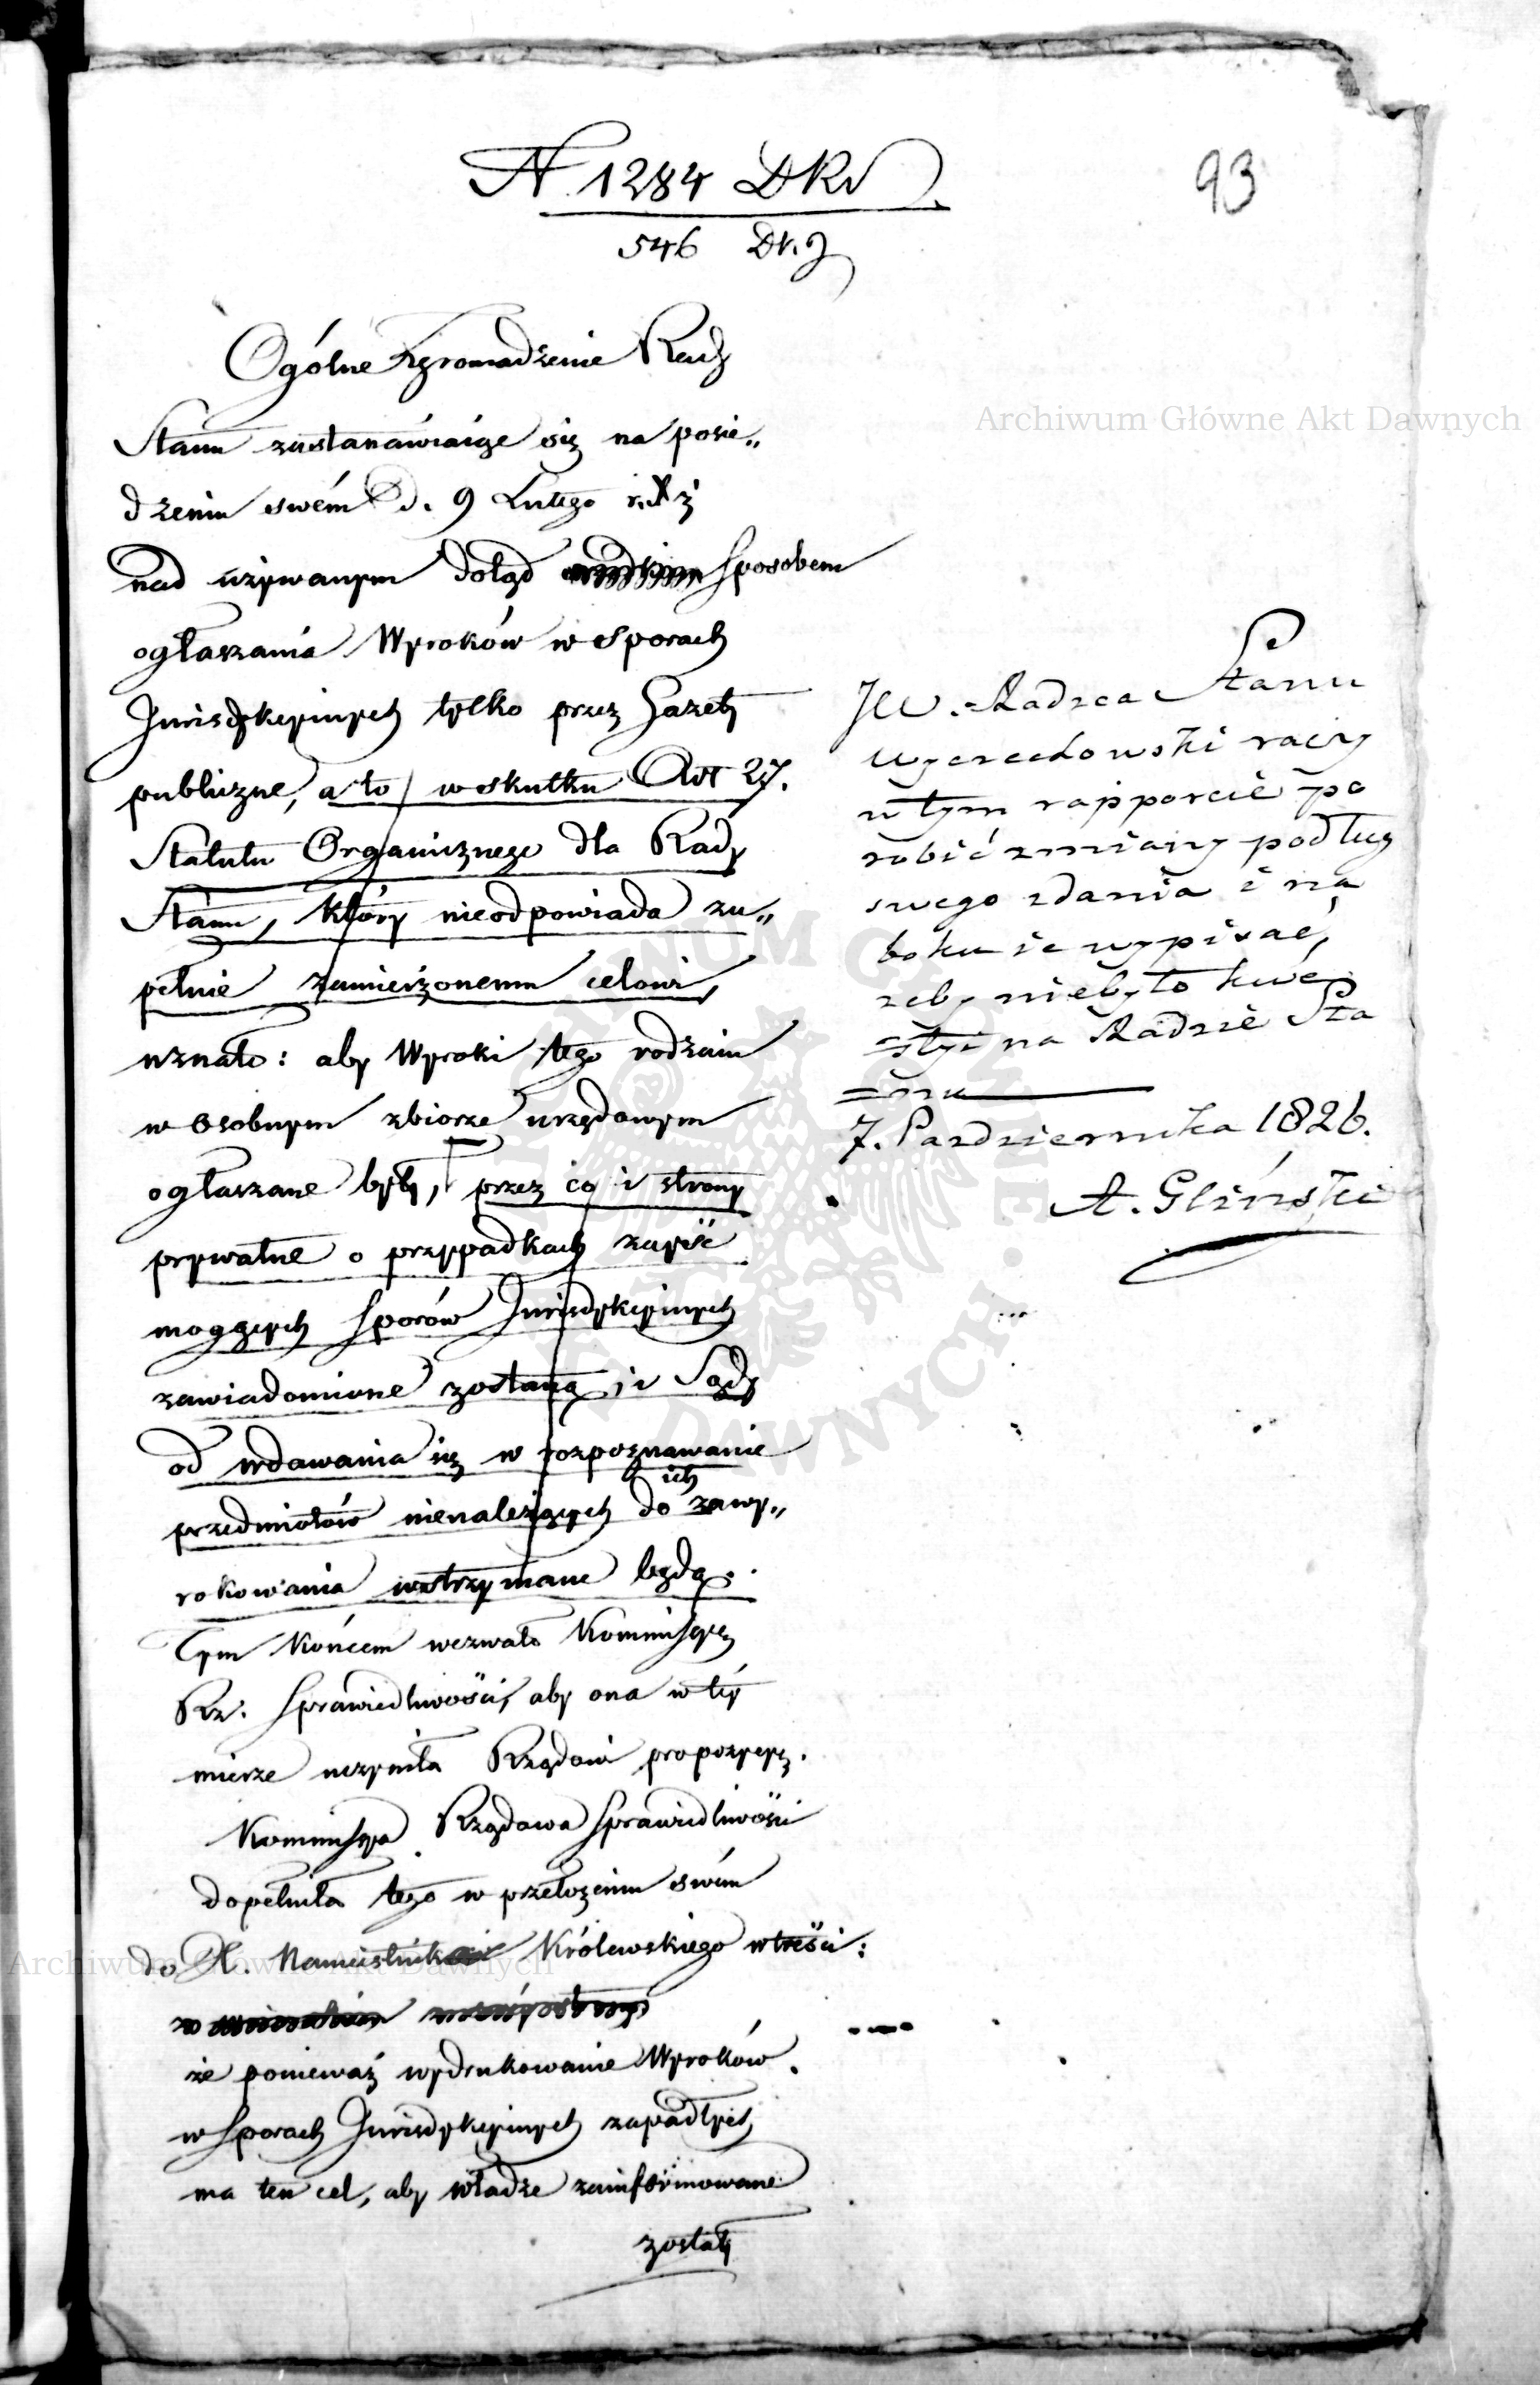 N 1284 DKr
93
546 Dr. J
Ogólne Zgromadzenie Rady
Stanu zastanawiaiąc się na posie„
dzeniu swém d. 9 Lutego r. z
nad używanym dotąd sposobem
ogłaszania Wyroków w Sporach
Jurisdykcyinych tylko przez Gazety
publiczne, a to w skutku Art 27.
Statutu Organicznego dla Rady
Stanu, który nieodpowiada zu„
pełnie zamierzonemu celowi,
uznało: aby Wyroki tego rodzaiu
w osobnym zbiorze urzędowym
ogłaszane były, przez co i strony
prywatne o przypadkach zayść
mogących Sporów Jurisdykcyinych
zawiadomione zostaną, i Sądy
od wdawania się w rozpoznawanie
przedmiotów nienależących do ich zawy„
rokowania wstrzymane będą.
Tym końcem wezwało Kommissyę
Rz. Sprawiedliwości, aby ona w téy
mierze uczyniła Rządowi propozycyę.
Kommissya Rządowa Sprawiedliwości
dopełniła tego w przełożeniu swém
do X. Namiestnika Królewskiego w treści:
że ponieważ wydrukowanie Wyroków
w Sporach Jurisdykcyinych zapadłych
ma ten cel, aby władze zainformowane
zostały
JW. Radzca Stanu
Wyczechowski raczy
w tym rapporcie po
robić zmiany podług
swego zdania i na
boku ie wypisać,
żeby niebyło kwe
=styi na Radzie Sta
=nu
7. Pazdziernika 1826.
A. Gliński
Archiwum Główne Akt Dawnych
Archiwum Główne Akt Dawnych
ARCHIWUM GŁÓWNE AKT DAWNYCH